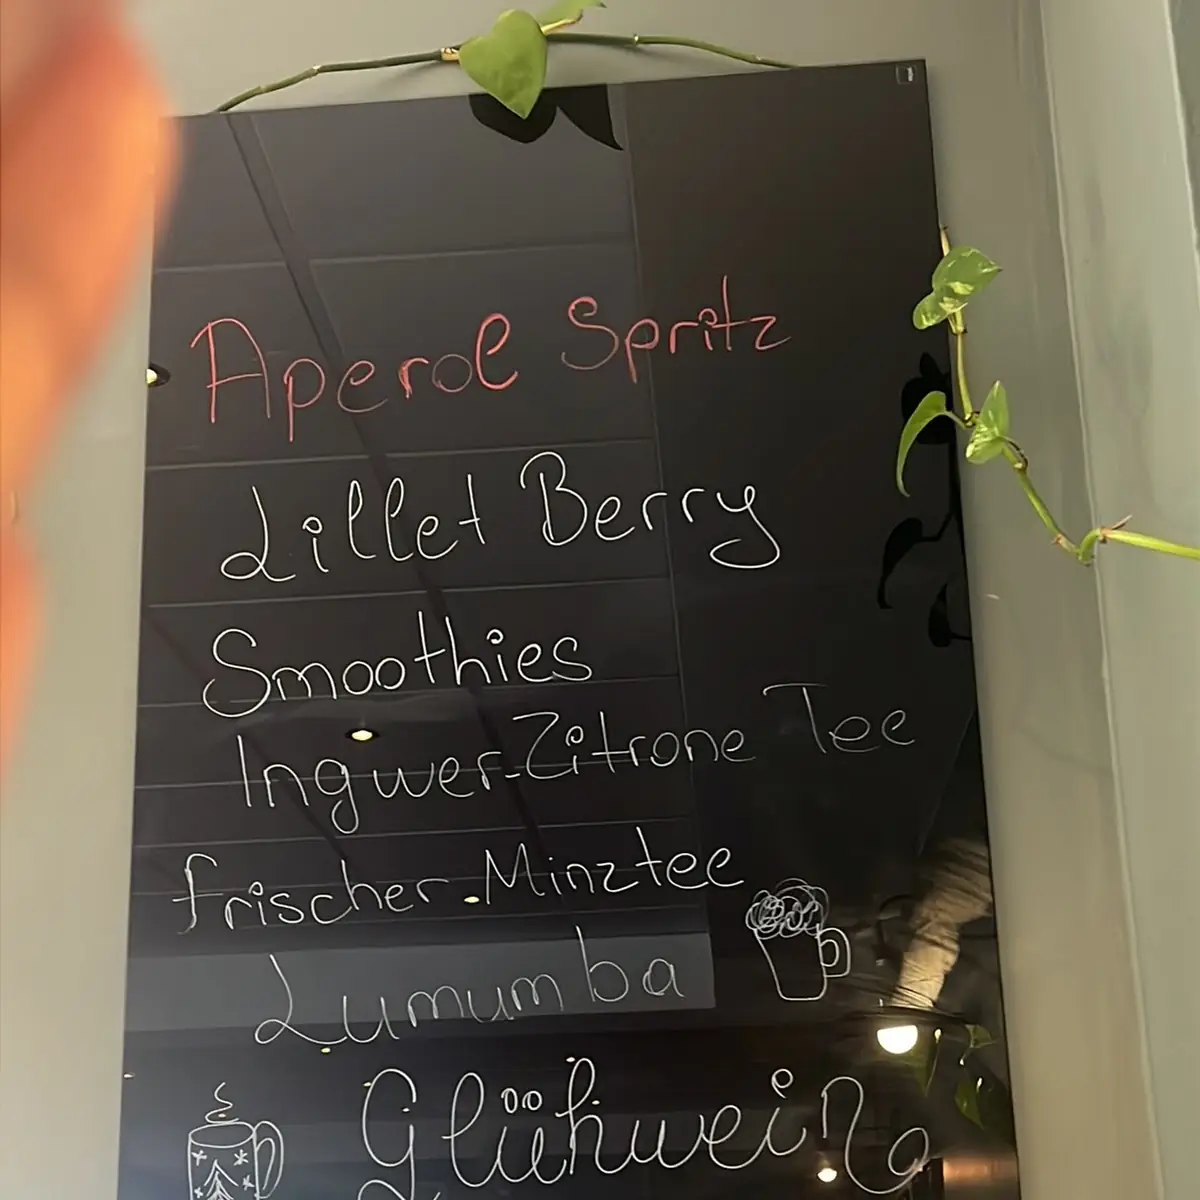 Aperol Spritz
Lillet Berry
Smoothies
Ingwer-Zitrone Tee
frischer Minztee
Lumumba
Glühwein